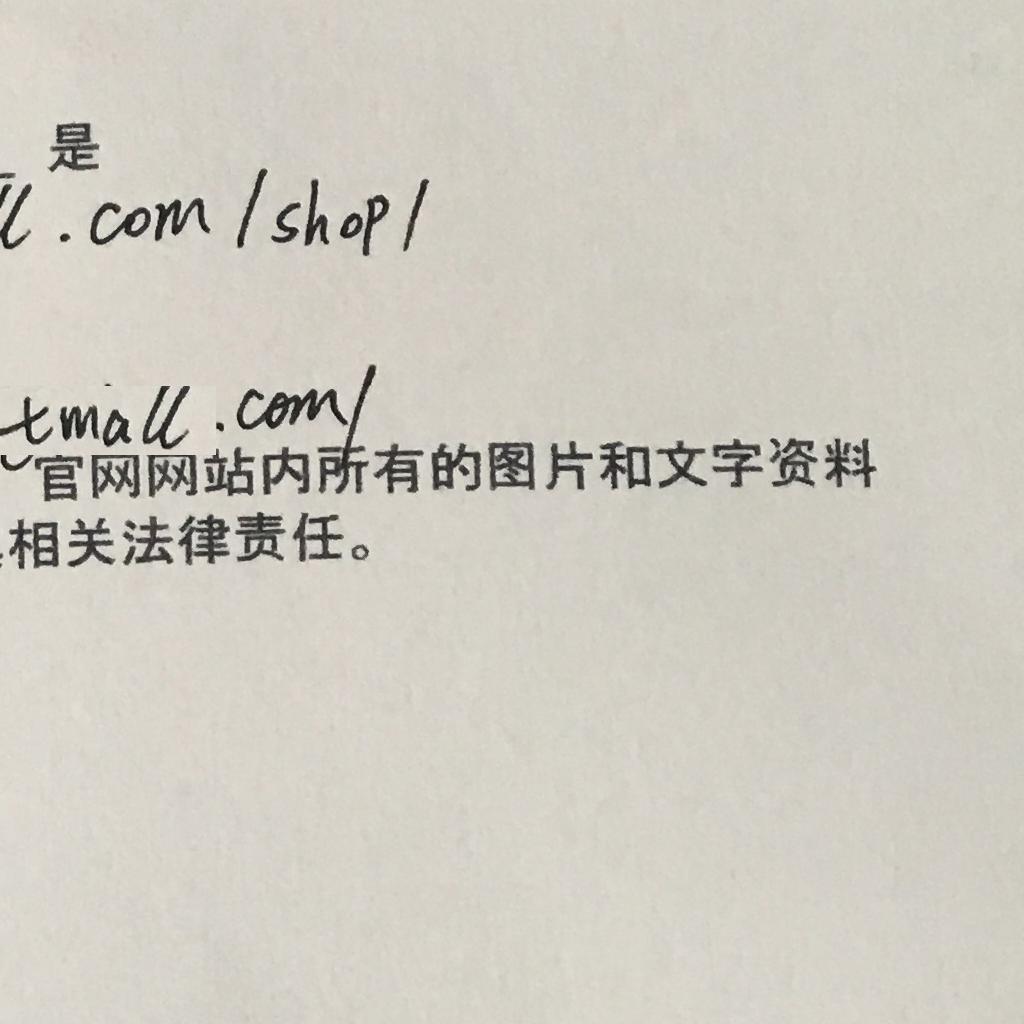 是
ll.com/shop/
tmall.com/
官网网站内所有的图片和文字资料
相关法律责任。